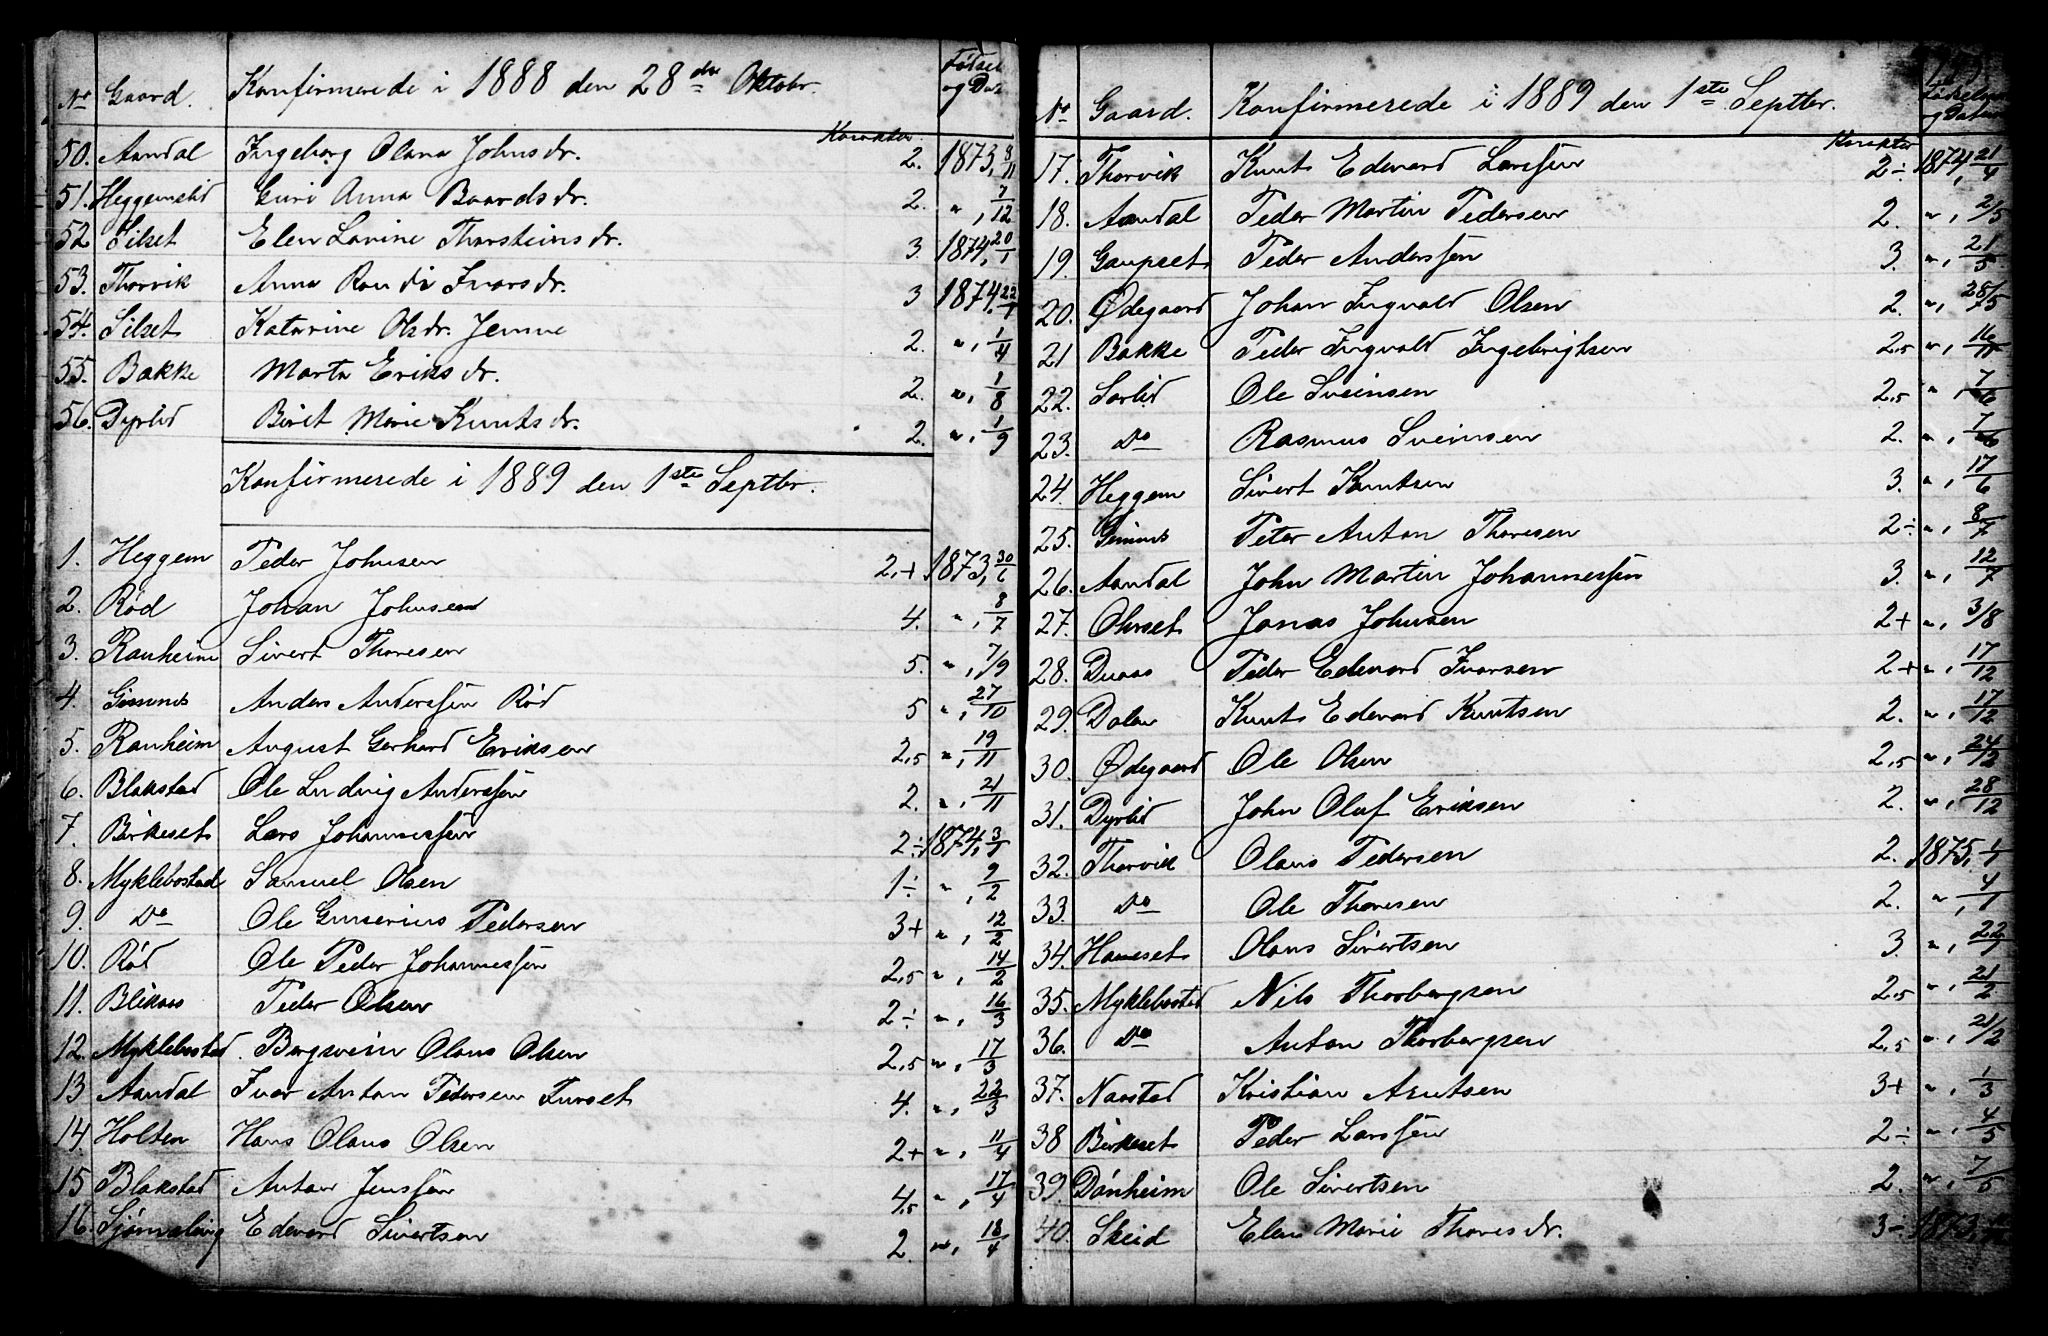 No Gaard. Konfirmerede i 1888 den 28de Oktobr. Fødsel og Dat
Karakter
50. Aandal Ingeborg Olana Johnsdr. 2. 1873, 8/11
51. Heggemslid Guri Anna Baardsdr. 2. ", 7/12
52 Silset Elen Lavine Thorsteinsdr. 3. 1874, 20/1
53. Thorvik Anna Randi Ivarsdr. 3 1874, 22/1
54. Silset Katarine Olsdr. Jemne 2. ", 1/4
55. Bakke Marta Eriksdr. 2. ", 1/8
56. Dyrlid Beret Marie Knutsdr. 2. ", 1/9
Konfirmerede i 1889 den 1ste Septbr.
1. Heggem Peder Johnsen 2,+ 1873, 30/6
2. Rød Johan Johnsen 4. ", 8/7
3. Ranheim Sivert Thoresen 5. ", 7/9
4. Gimnes Anders Anderssen Rød 5 ", 27/10
5. Ranheim August Gerhard Eriksen 2,5 ", 19/11
6. Blakstad Ole Ludvig Anderssen 2. ", 21/11
7. Birkeset Lars Johannessen 2÷ 1874, 3/1
8. Myklebostad Samuel Olsen 1÷ ", 9/2
9. Do Ole Gunerius Pedersen 3+ ", 12/2
10. Rød Ole Peder Johannessen 2,5 ", 14/2
11. Blikaas Peder Olsen 2÷ ", 16/3
12. Myklebostad. Bergsvein Olaus Olsen 2,5 ", 17/3
13 Aandal Ivar Anton Pedersen Furset 4. ", 22/3
14. Holten Hans Olaus Olsen 2+ ", 11/4
15 Blakstad Anton Jenssen 4,5 ", 17/4
16. Edevard Sivertsen 2. ", 18/4
No Gaard. Konfirmerede i 1889 den 1ste Septbr. og Datum
Karakter
17. Thorvik Knut Edevard Larssen 2÷ 1874, 21/4
18. Aandal Peder Martin Pedersen 2. ", 2/5
19. Gaupset Peder Anderssen 3. ", 21/5
20. Ødegaard Johan Ingvald Olsen 2. ", 28/5
21 Bakke Peder Ingvald Ingebrigtsen 2,5 ",
22. Sørlid Ole Sveinsen 2,5 ", 7/6
23. Do Rasmus Sveinsen 2. ", 7/6
24. Heggem Sivert Knutsen 3. ", 17/6
25. Gimnes Peter Anton Thoresen 2÷ ", 8/7
26. Aandal John Martin Johannessen 3. ", 12/7
27. Ohrset Jonas Johnsen 2+ ", 3/8
28. Duaas Peder Edevard Ivarsen 2+ ", 17/12
29. Dalen Knut Edevard Knutsen 2. ", 17/12
30. Ødegaard Ole Olsen 2,5 ",
31. Dyrlid John Oluf Eriksen 2. ", 28/12
32. Thorvik Olaus Pedersen 2. 1875, 1/1
33. Do Ole Thoresen 2. ", 4/1
34. Haneset Olaus Sivertsen 3. ", 22/1
35. Myklebostad Nils Thorbergsen 2,5 ", 21/2
36. Do Anton Thorbergsen 2,5 ", 21/2
37. Naastad Kristian Arntsen 3+ ", 1/3
38 Birkeset Peder Larssen 2÷ ", 4/5
39 Dønheim Ole Sivertsen 2. ", 7/5
40. Skeid Elen Marie Thoresdr. 3- 1873,